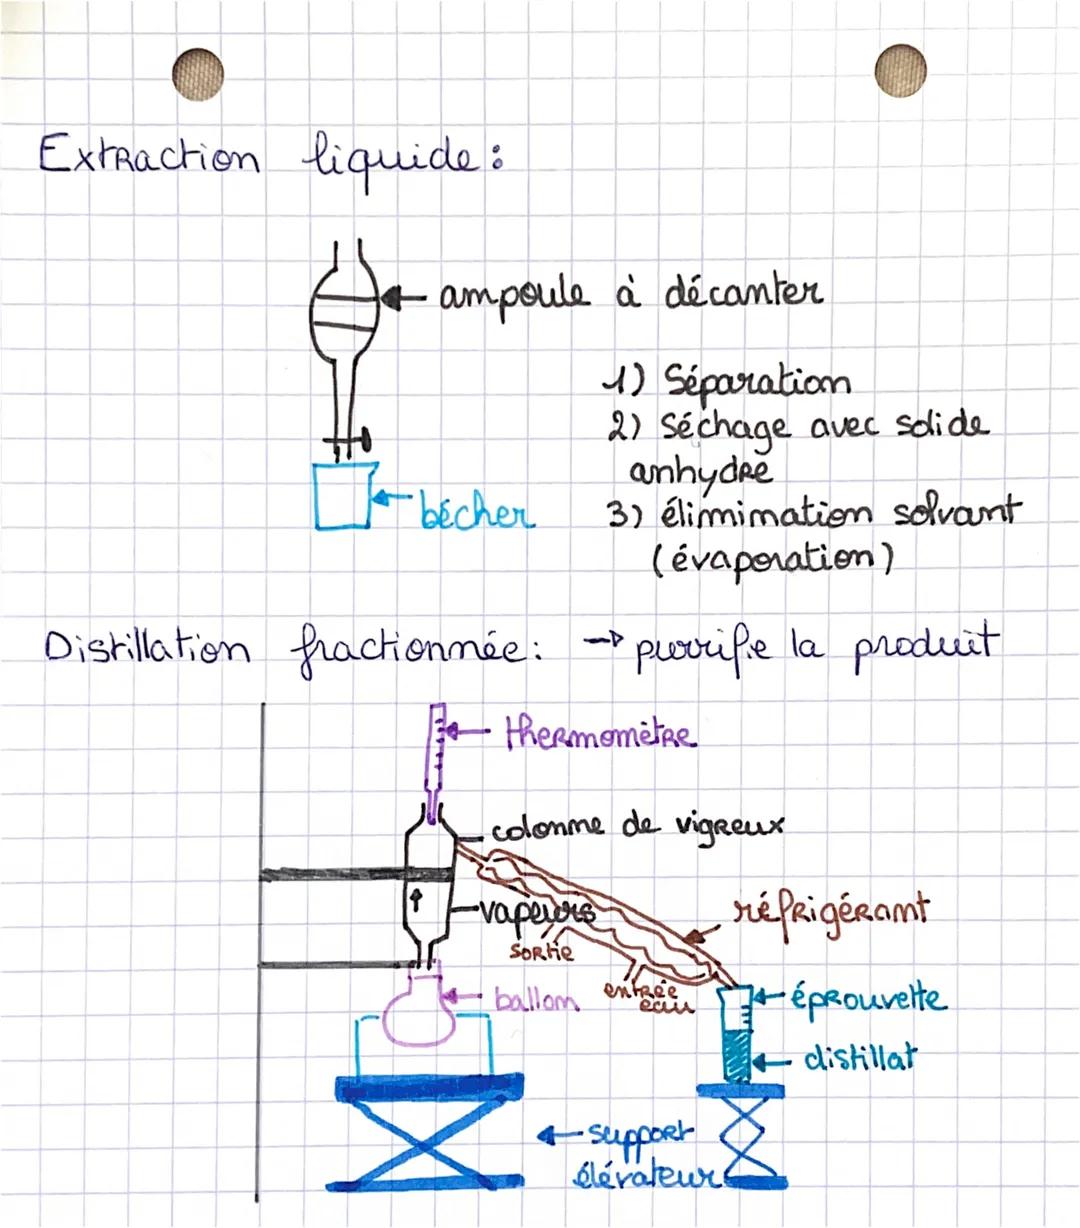 Extraction liquide :
ampoule à décanter
1) Séparation
2) Séchage avec solide
anhydre
bécher
3) élimimation solvant
(évaporation)
Distillation fractionnée : → purrifie la produit
thermomètre
colonne de vigreux
vapeurs
réfrigérant
sortie
entrée
eau
ballon
éprouvette
distillat
support
élévateur